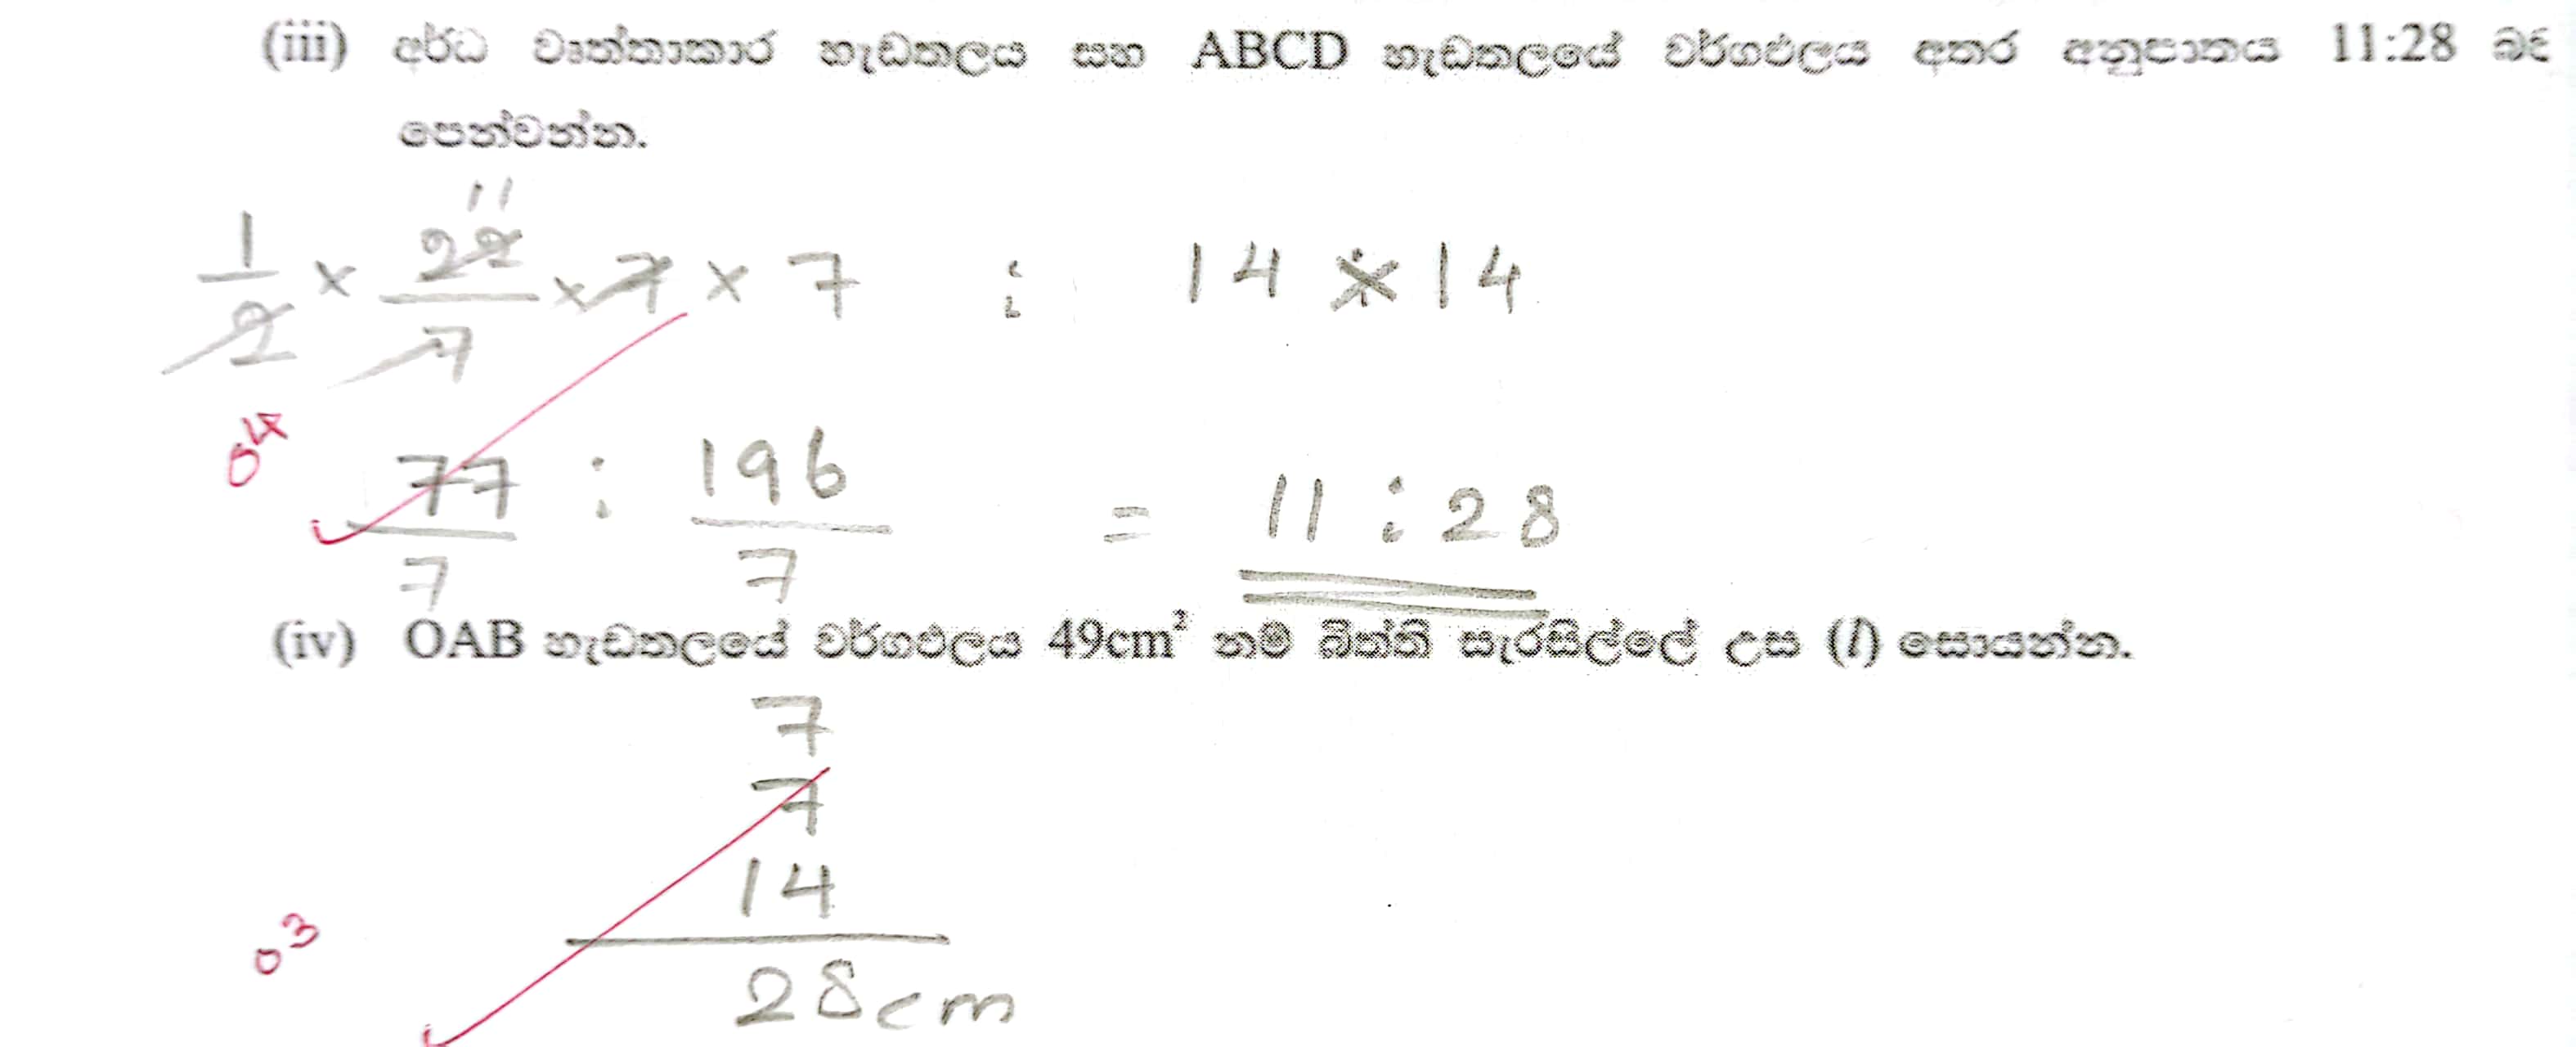 (iii) අර්ධ වෘත්තාකාර හැඩතලය සහ ABCD හැඩතලයේ වර්ගඵලය අතර අනුපාතය 11:28 බව
පෙන්වන්න.
1/2 × 22/7 × 7 × 7 : 14 × 14
11
04
77/7 : 196/7 = 11 : 28
(iv) OAB හැඩතලයේ වර්ගඵලය 49cm² නම් බිත්ති සැරසිල්ලේ උස (l) සොයන්න.
7
7
14
03
28cm